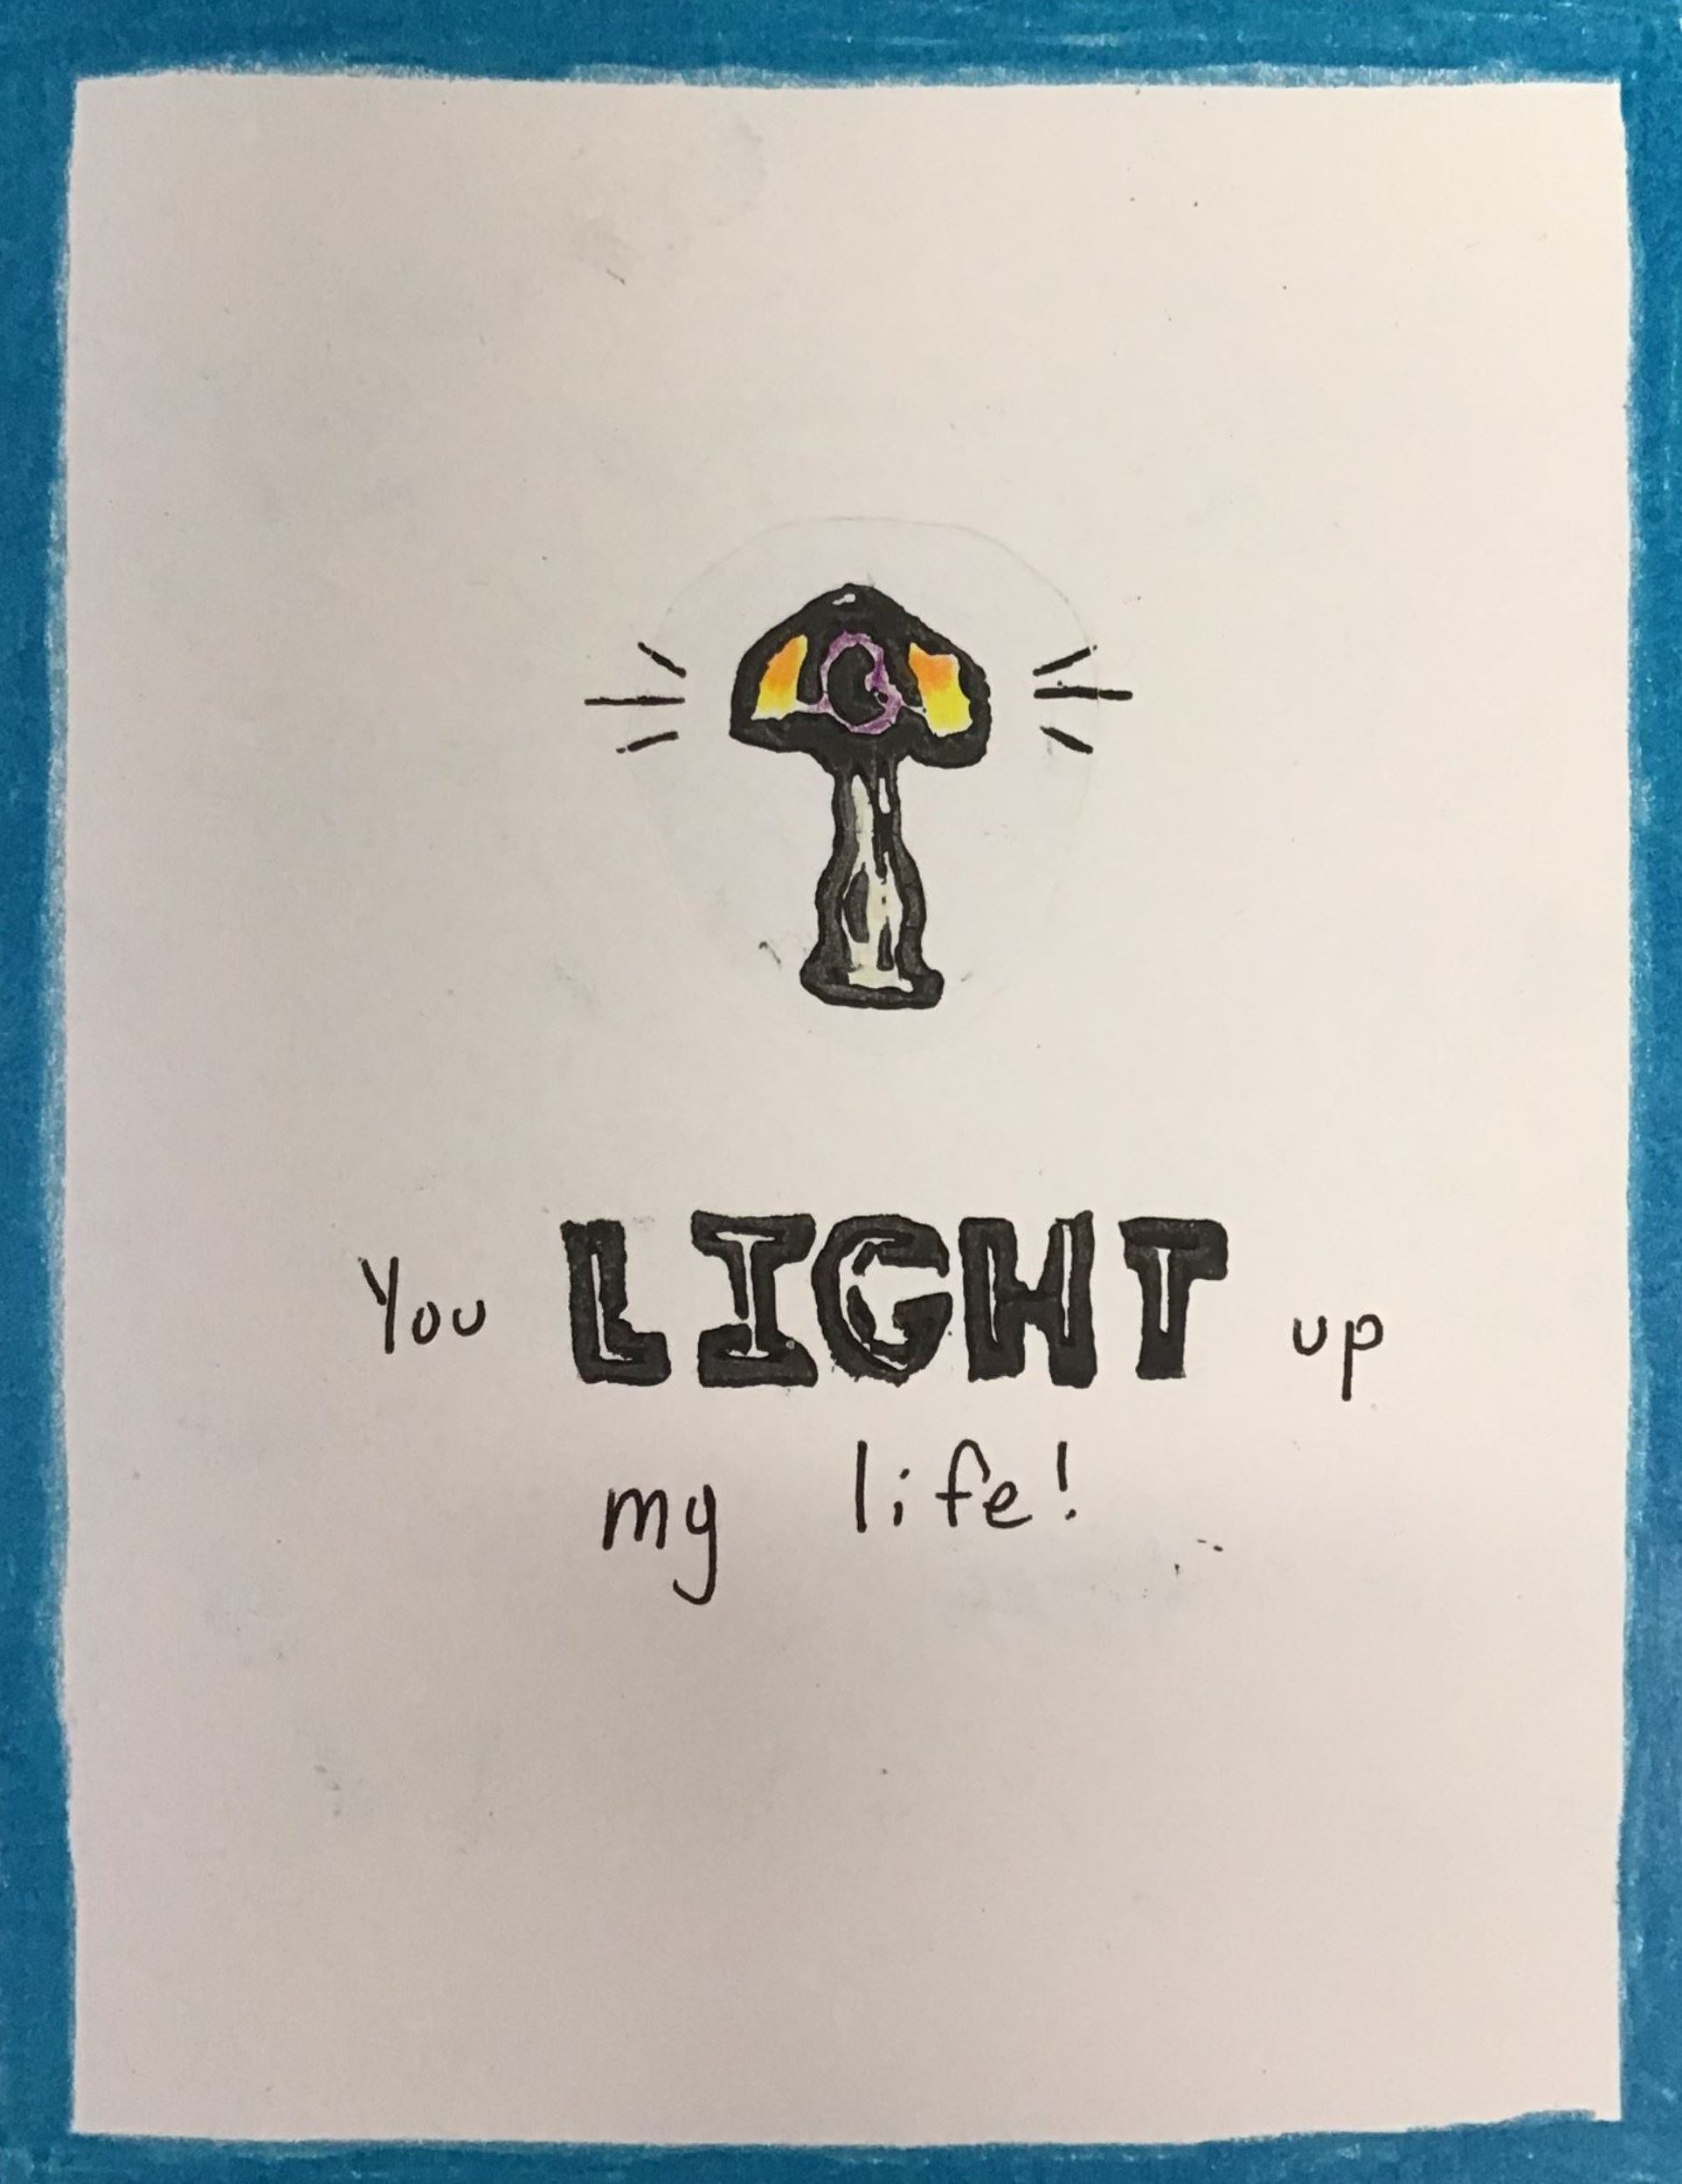 You LIGHT up
my life!